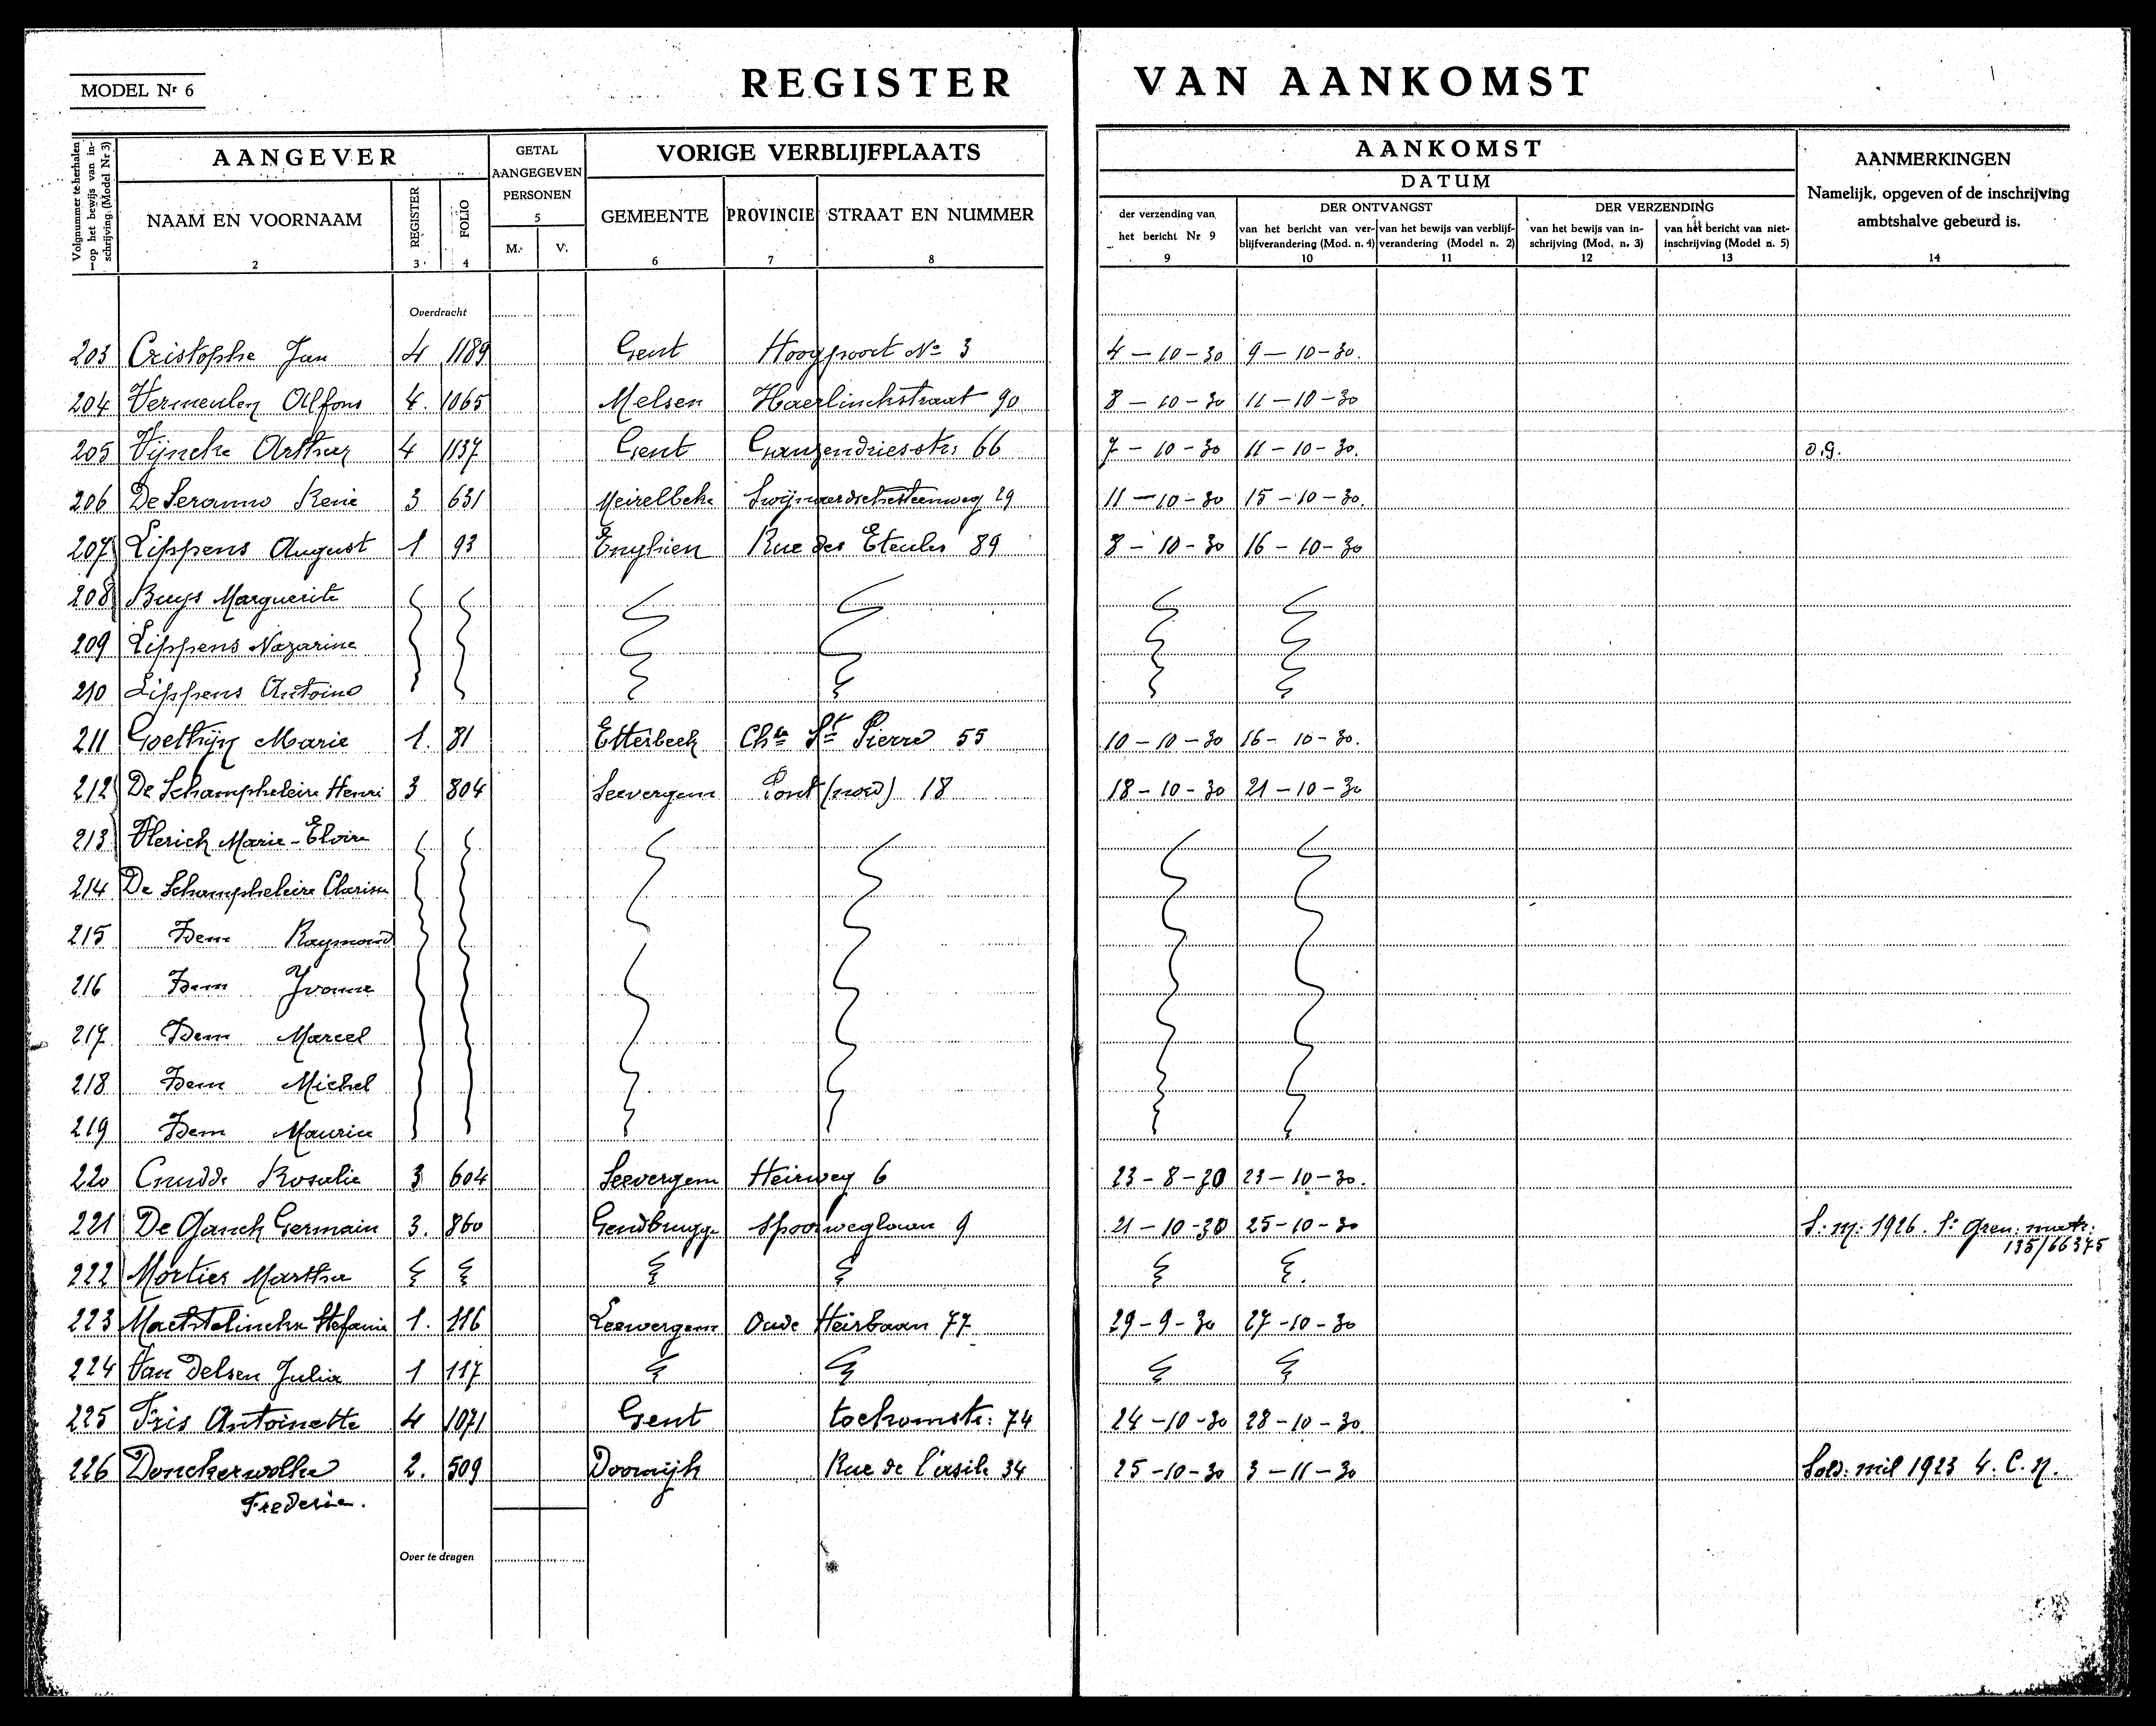 MODEL Nr 6
REGISTER VAN AANKOMST
Volgnummer te herhalen op het bewijs van inschrijving, (Model Nr 3)
AANGEVER
GETAL AANGEGEVEN PERSONEN
VORIGE VERBLIJFPLAATS
AANKOMST
DATUM
AANMERKINGEN
Namelijk, opgeven of de inschrijving ambtshalve gebeurd is.
NAAM EN VOORNAAM REGISTER FOLIO M. V. GEMEENTE PROVINCIE STRAAT EN NUMMER
der verzending van het bericht Nr 9
DER ONTVANGST
van het bericht van verblijfverandering (Mod. n. 4) van het bewijs van verblijfverandering (Model n. 2)
DER VERZENDING
van het bewijs van inschrijving (Mod. n. 3) van het bericht van niet-inschrijving (Model n. 5)
1 2 3 4 5 6 7 8 9 10 11 12 13 14
Overdracht
203 Cristophe Jan 4 1189 Gent Hoogpoort No 3 4-10-30 9-10-30.
204 Vermeulen Alfons 4. 1065 Melsen Haerlinckstraat 90 8-10-30 11-10-30
205 Vijncke Arthur 4 1137 Gent Ganzendriesstr: 66 7-10-30 11-10-30. o.g.
206 De Seranno René 3 631 Meirelbeke Swijnaerdschesteenweg 29 11-10-30 15-10-30.
207 Lippens August 1 93 Enghien Rue des Eteules 89 8-10-30 16-10-30
208 Buys Marguerite
209 Lippens Nazarine
210 Lippens Antoine
211 Goethijn Marie 1. 81 Etterbeek Chée St Pierre 55 10-10-30 16-10-30.
212 De Schampheleire Henri 3 804 Seevergem Pont (noord) 18 18-10-30 21-10-30
213 Vlerick Marie-Elvire
214 De Schampheleire Clarisse
215 Idem Raymond
216 Idem Yvonne
217 Idem Marcel
218 Idem Michel
219 Idem Maurice
220 Cnudde Rosalie 3 604 Seevergem Heirweg 6 23-8-30 23-10-30.
221 De Ganck Germain 3. 860 Gendbrugge Spoorweglaan 9 21-10-30 25-10-30 S: m: 1926. 1e Gren: matr:
135/66375
222 Mortier Martha
223 Machtelinckx Stefanie 1. 116 Zeevergem Oude Heirbaan 77 29-9-30 27-10-30
224 Van Delsen Julia 1 117
225 Fris Antoinette 4 1071 Gent toekomstr: 74 24-10-30 28-10-30.
226 Donckerwolke 2. 509 Doornijk Rue de l'asile 34 25-10-30 3-11-30 Sold: mil 1923 4. C. M.
Frederic.
Over te dragen